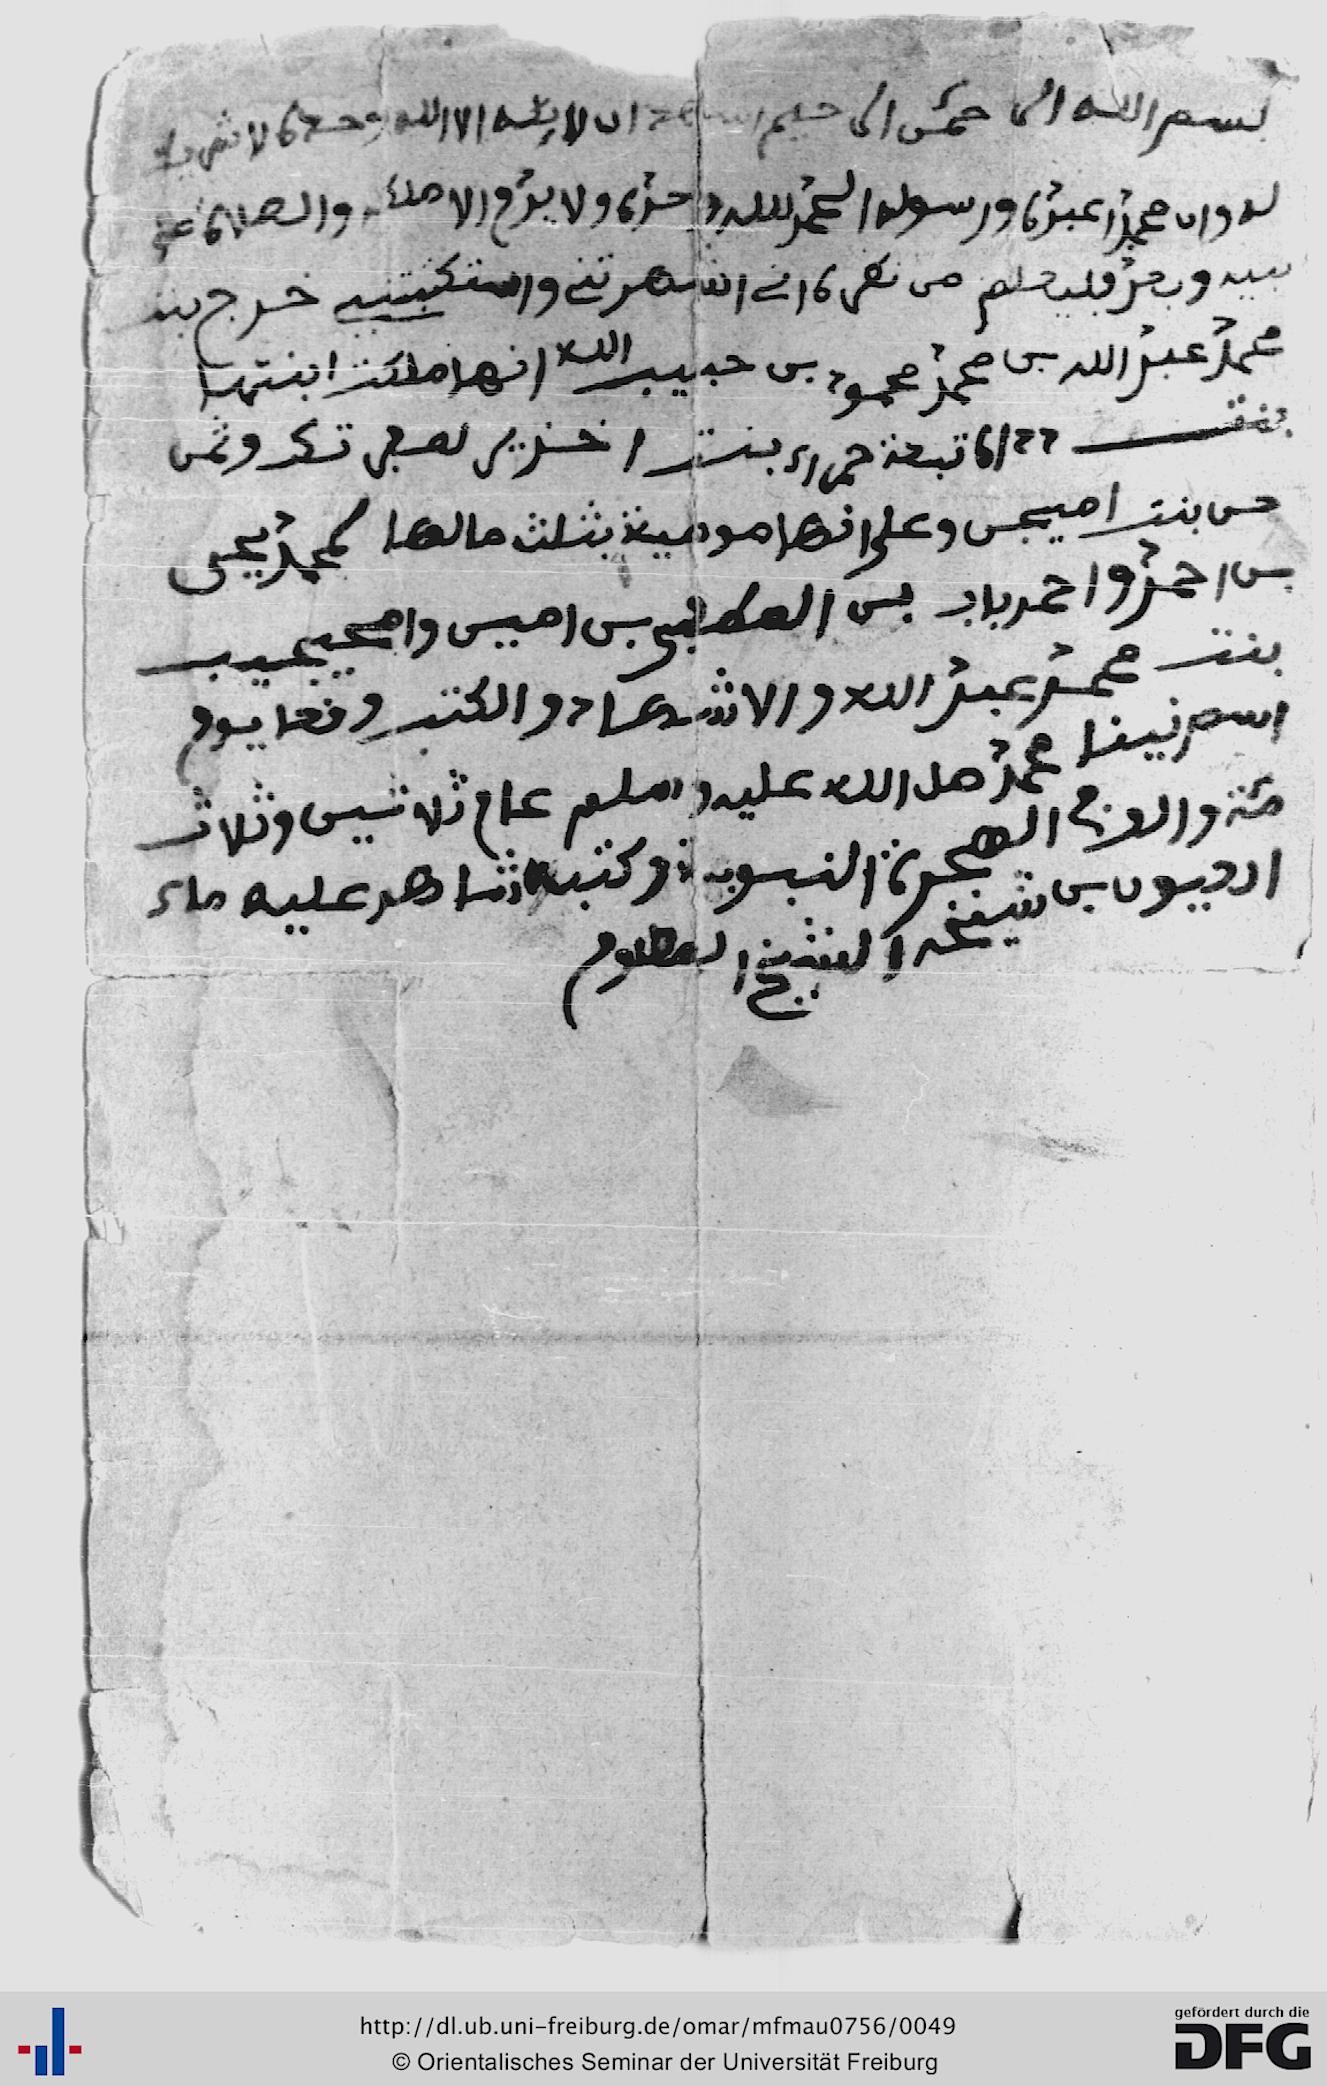 بسم الله الرحمن الرحيم ان لا إله الا الله وحده لا شريك
له وان محمدا عبده ورسوله الحمد لله وحده ولا يدوم الا ملكه والصلاة على
نبيه وبعد فليعلم من نظره اني اشهدتني واستكتبتني خرج بنت
محمد عبد الله بن محمد محمود بن حبيب الله انها ملكت ابنتها
بنت تبعة حمراء بنت
بنت امييجن وعلى انها موصية بثلث مالها لمحمد يحيى
بن احمد واحمد باب بن المصطفى بن اميي
بنت محمد عبد الله والاشهاد والكتب وقعا يوم
اسم نبينا محمد صل الله عليه وسلم عام ثلاثين وثلاث
مئة والف الهجرة النبوية وكتبه شاهد عليه ماء
بن شيخنا الشيخ
http://dl.ub.uni-freiburg.de/omar/mfmau0756/0049
© Orientalisches Seminar der Universität Freiburg
gefördert durch die
DFG